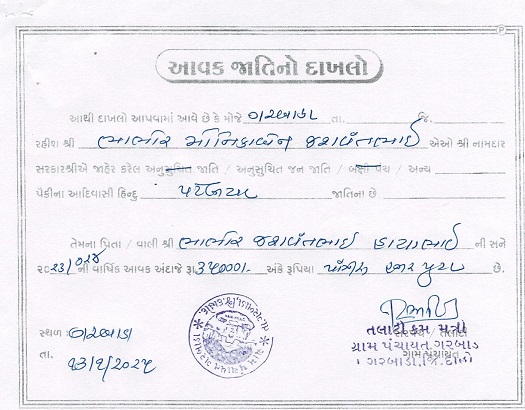 આવક જાતિનો દાખલો
આથી દાખલો આપવામાં આવે છે કે મોજે ગરબાડા તા. જિ.
રહીશ શ્રી ભાભોર મોનિકાબેન જશવંતભાઈ એઓ શ્રી નામદાર
સરકારશ્રીએ જાહેર કરેલ અનુસુચિત જાતિ / અનુસુચિત જન જાતિ / બક્ષી પંચ / અન્ય
પૈકીના આદિવાસી હિન્દુ જાતિના છે
તેમના પિતા / વાલી શ્રી ભાભોર જશવંતભાઈ ની સને
૨૦૨૩/૦૨૪ ની વાર્ષિક આવક અંદાજે રૂા. ૩૫૦૦૦/- અંકે રૂપિયા પાંત્રીસ હજાર પુરા છે.
સ્થળ : ગરબાડા
તા. ૧૩/૧/૨૦૨૫
તલાટી કમ મંત્રી
ગ્રામ પંચાયત ગરબાડા
ગરબાડા, જિ. દાહોદ